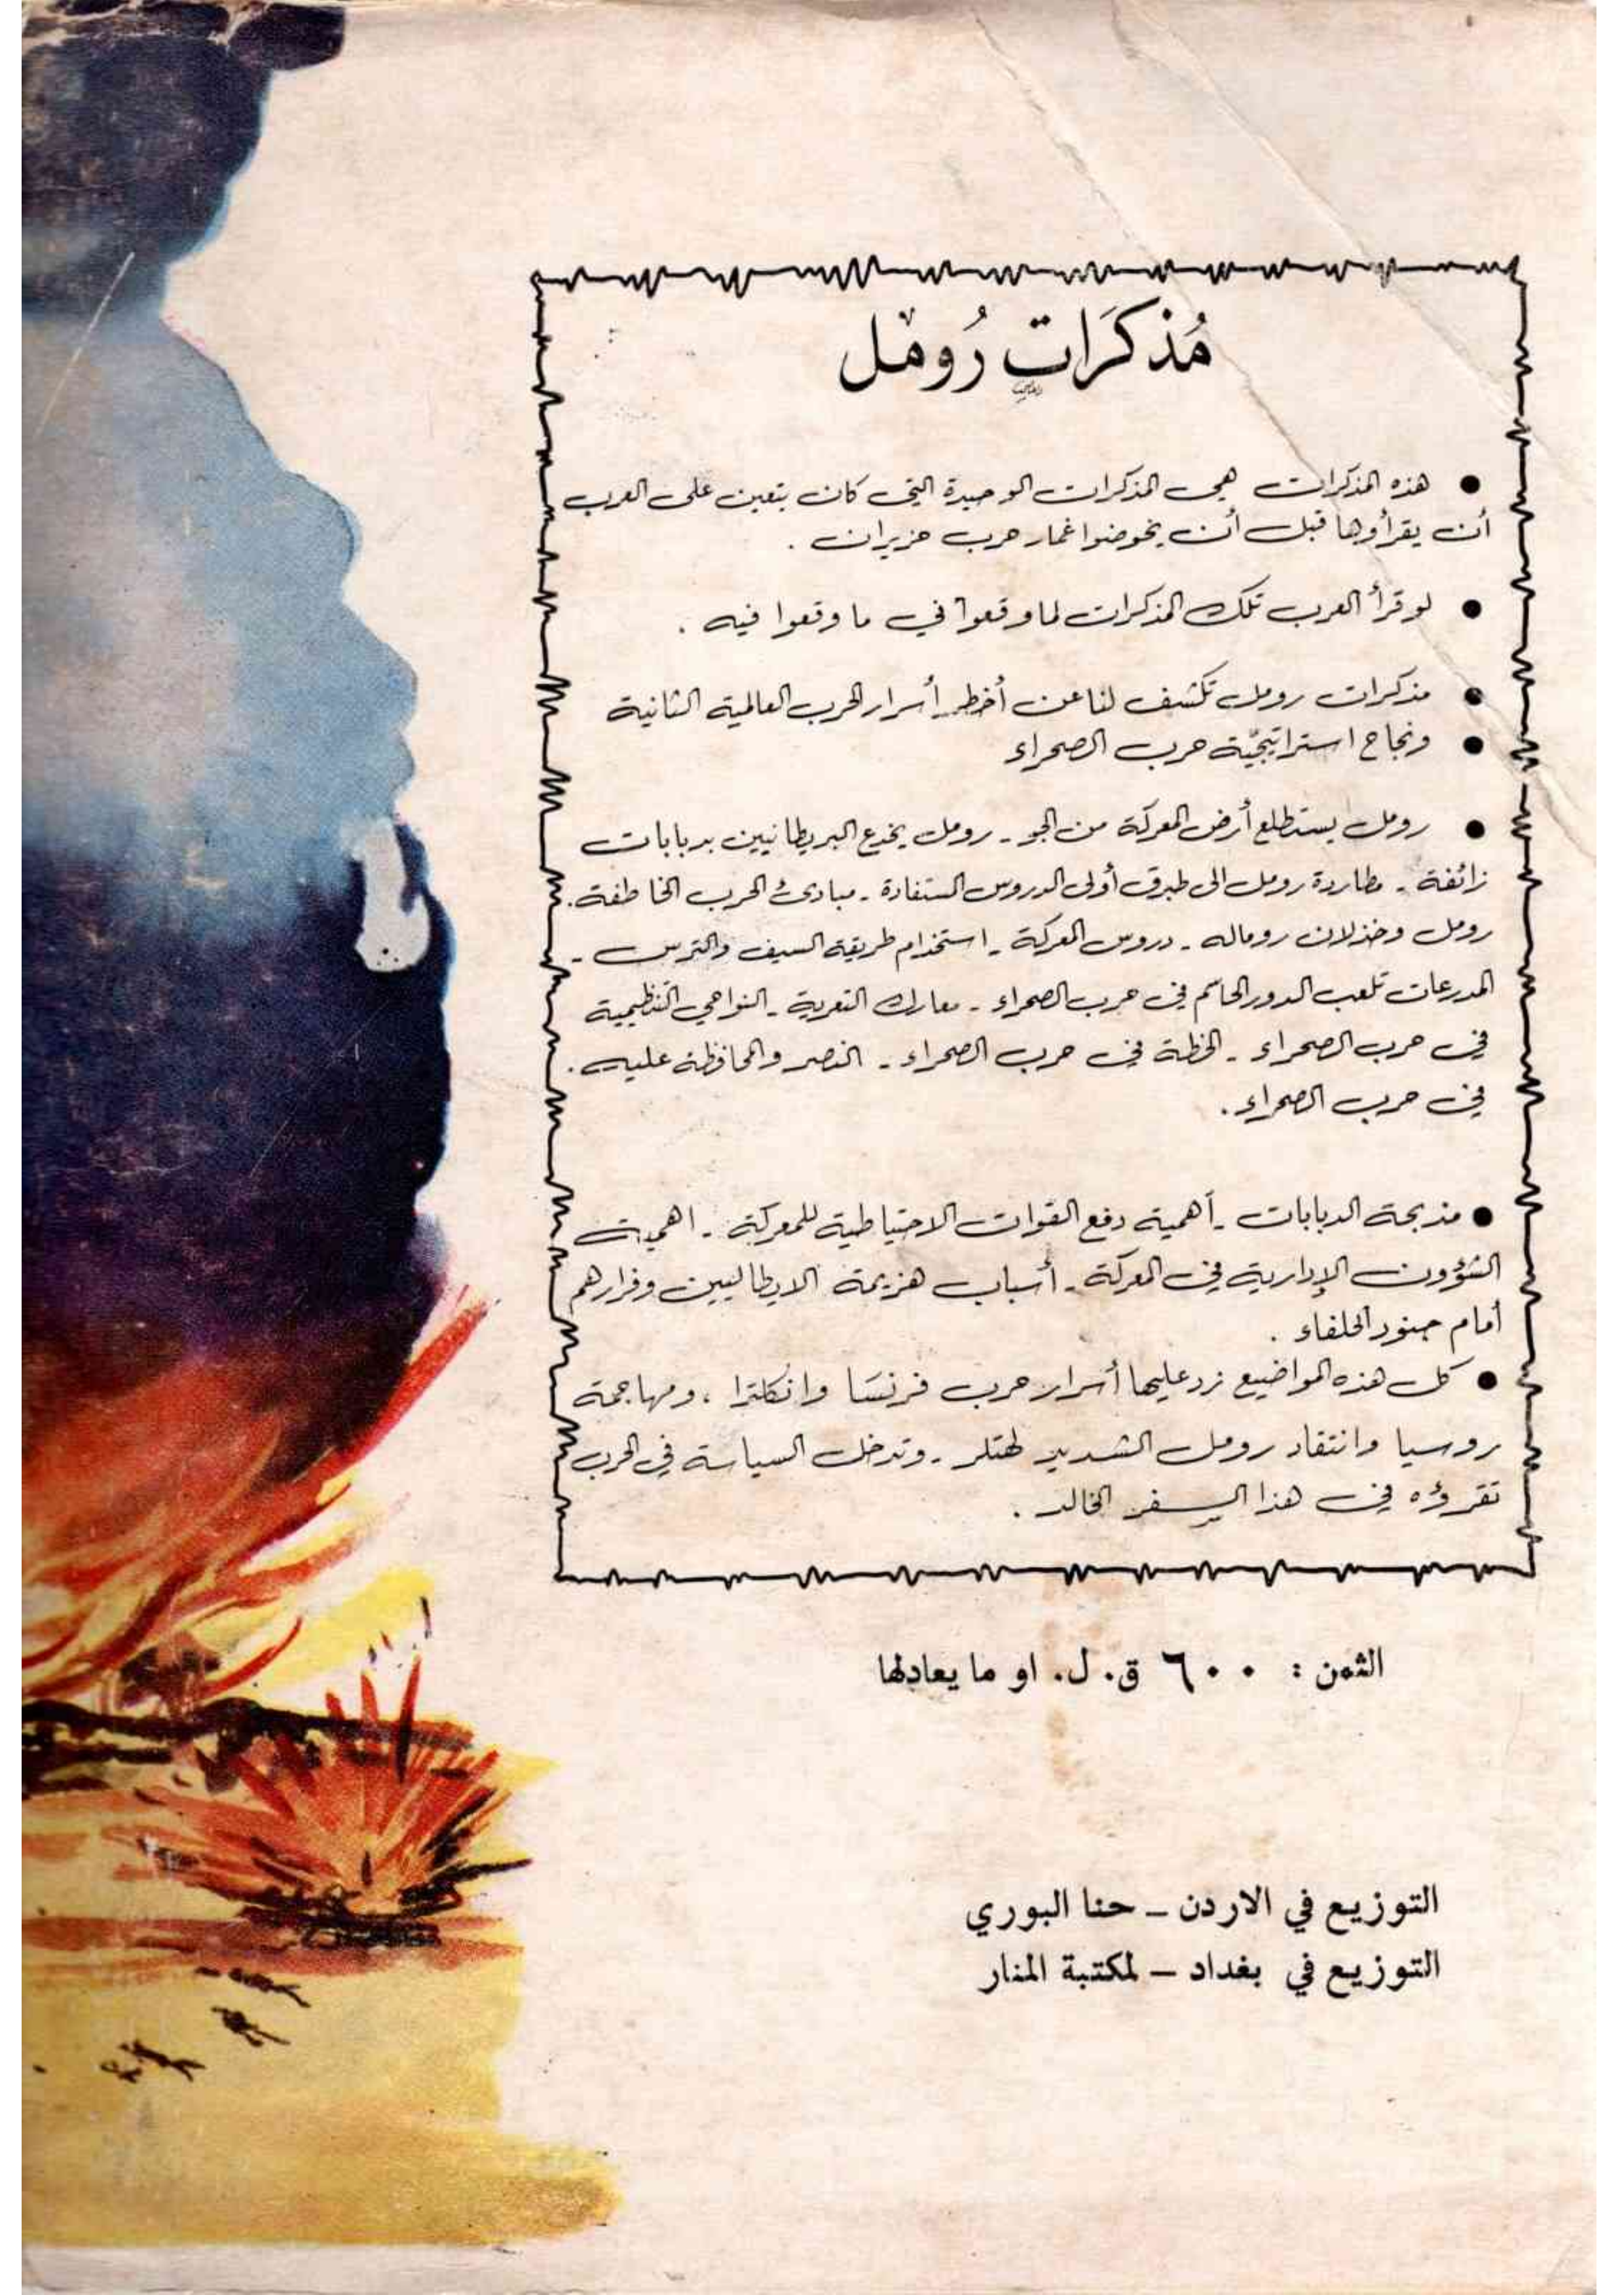 مُذكَرَاتِ رُومْل
● هذه المذكرات هي المذكرات الوحيدة التي كان يتعين على العرب
أن يقرأوها قبل أن يخوضوا غمار حرب حزيران .
● لو قرأ العرب تلك المذكرات لما وقعوا في ما وقعوا فيه .
● مذكرات رومل تكشف لنا عن أخطر أسرار الحرب العالمية الثانية
● ونجاح استراتيجيّة حرب الصحراء
● رومل يستطلع أرض المعركة من الجو - رومل يخدع البريطانيين بدبابات
زائفة - مطاردة رومل الى طبرق أولى الدروس المستفادة - مبادئ الحرب الخاطفة .
رومل وخذلان روماله - دروس المعركة - استخدام طريقة السيف والترس -
المدرعات تلعب الدور الحاسم في حرب الصحراء - معارك التعرية - النواحي التنظيمية
في حرب الصحراء - الخطة في حرب الصحراء - النصر والمحافظة عليه .
في حرب الصحراء .
● مذبحة الدبابات - أهمية دفع القوات الاحتياطية للمعركة - اهمية
الشؤون الإدارية في المعركة - أسباب هزيمة الايطاليين وفرارهم
أمام جنود الحلفاء .
● كل هذه المواضيع زد عليها أسرار حرب فرنسَا وانكلترا ، ومهاجمة
روسيا وانتقاد رومل الشديد لهتلر - وتدخل السياسة في الحرب
تقرؤه في هذا السِفر الخالد .
الثمن : ٦٠٠ ق. ل. او ما يعادلها
التوزيع في الاردن – حنا البوري
التوزيع في بغداد – لمكتبة المنار